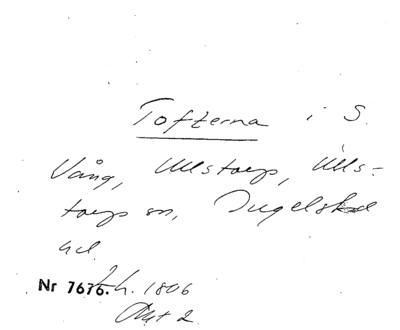 Tofterna i S.
Vång, Ullstorp, Ülls-
torps sn, Ingelstad
hd.
Nr 7676. L.h. 1806
Akt 2